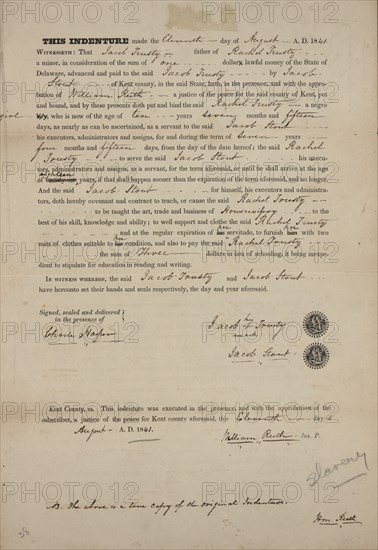 THIS INDENTURE made the Eleventh day of August A. D. 1841.
WITNESSETH: That Jacob Trusty father of Rachel Trusty
a minor, in consideration of the sum of one dollar, lawful money of the State of
Delaware, advanced and paid to the said Jacob Trusty by Jacob
Stout of Kent county, in the said State, hath, in the presence, and with the appro-
bation of William Ruth a justice of the peace for the said county of Kent, put
and bound, and by these presents doth put and bind the said Rachel Trusty a negro
girl who is now of the age of ten years seven months and fifteen
days, as nearly as can be ascertained, as a servant to the said Jacob Stout
his executors, administrators and assigns, for and during the term of seven years
four months and fifteen days, from the day of the date hereof; the said Rachel
Trusty to serve the said Jacob Stout his execu-
tors, administrators and assigns, for the term aforesaid, or until he shall arrive at the age
of eighteen years, if that shall happen sooner than the expiration of the term aforesaid, and no longer.
And the said Jacob Stout for himself, his executors and administra-
tors, doth hereby covenant and contract to teach, or cause the said Rachel Trusty
to be taught the art, trade and business of Housewifery to the
best of his skill, knowledge and ability; to well support and clothe the said Rachel Trusty
and at the regular expiration of her servitude, to furnish her with two
suits of clothes suitable to her condition, and also to pay the said Rachel Trusty
the sum of Three dollars in lieu of schooling, it being inexpe-
dient to stipulate for education in reading and writing.
IN WITNESS WHEREOF, the said Jacob Trusty and Jacob Stout
have hereunto set their hands and seals respectively, the day and year aforesaid.
Signed, sealed and delivered
in the presence of
Charles Harper
Jacob his + Trusty
mark
Jacob Stout
Kent County, ss. This indenture was executed in the presence, and with the approbation of the
subscriber, a justice of the peace for Kent county aforesaid, this Eleventh day of
August A. D. 1841.
William Ruth Jus. P.
slavery
The above is a true copy of the original Indenture.
Wm. Ruth